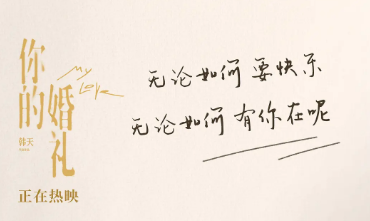 你的婚礼
My Love
韩天
正在热映
无论如何 要快乐
无论如何 有你在呢